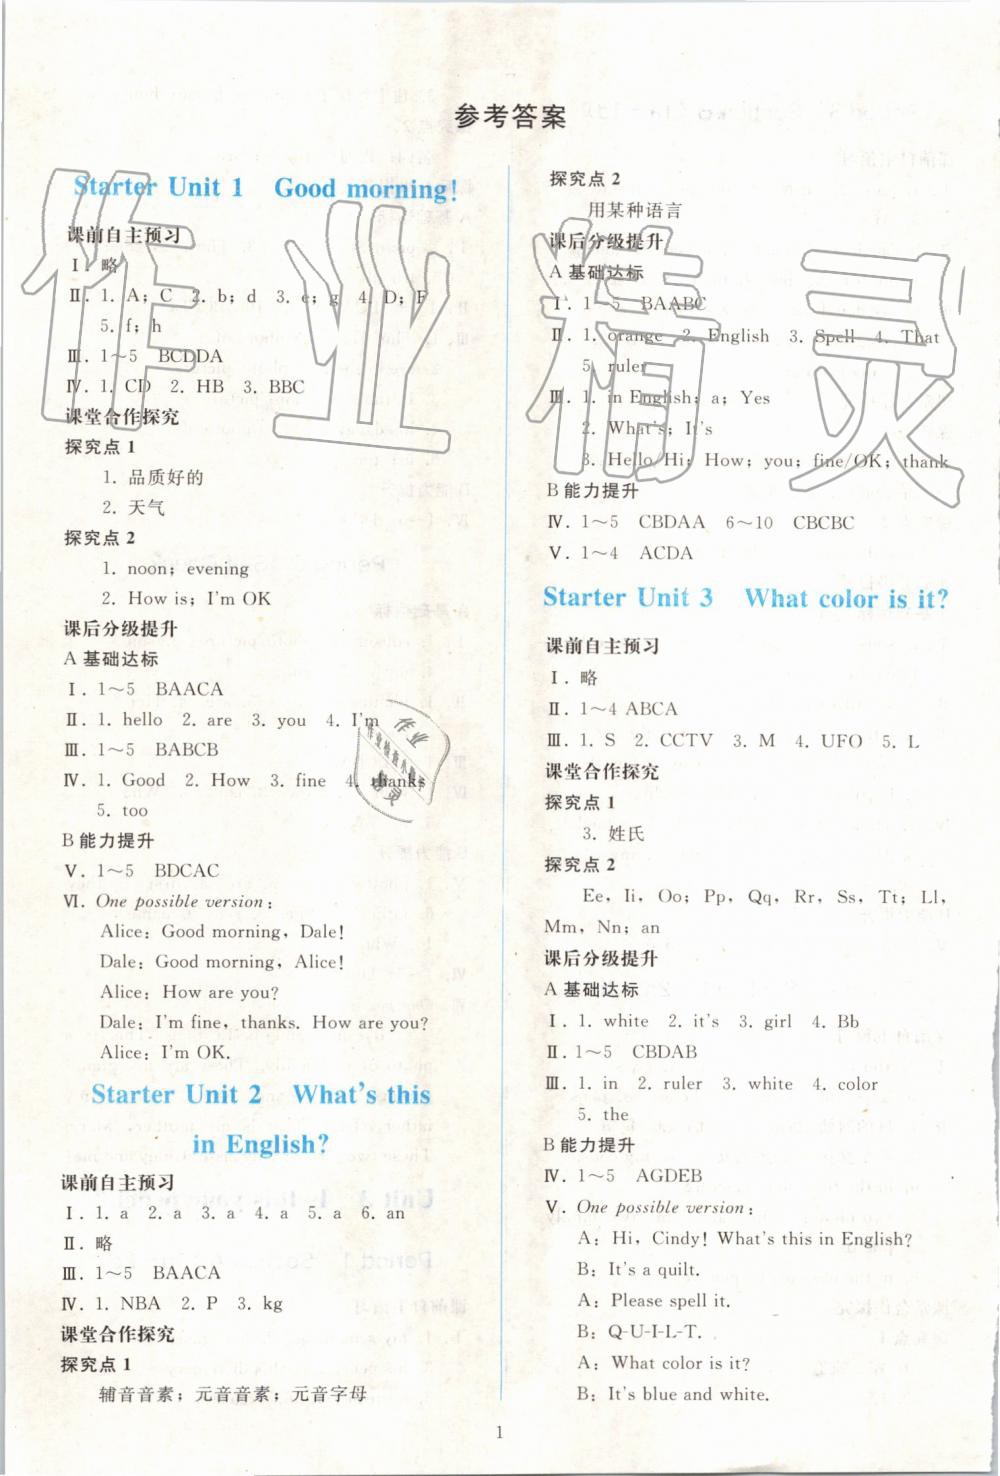 参考答案
Starter Unit 1 Good morning!
课前自主预习
Ⅰ. 略
Ⅱ. 1. A; C 2. b; d 3. e; g 4. D; F
5. f; h
Ⅲ. 1~5 BCDDA
Ⅳ. 1. CD 2. HB 3. BBC
课堂合作探究
探究点 1
1. 品质好的
2. 天气
探究点 2
1. noon; evening
2. How is; I'm OK
课后分级提升
A 基础达标
Ⅰ. 1~5 BAACA
Ⅱ. 1. hello 2. are 3. you 4. I'm
Ⅲ. 1~5 BABCB
Ⅳ. 1. Good 2. How 3. fine 4. thanks
5. too
B 能力提升
Ⅴ. 1~5 BDCAC
Ⅵ. One possible version:
Alice: Good morning, Dale!
Dale: Good morning, Alice!
Alice: How are you?
Dale: I'm fine, thanks. How are you?
Alice: I'm OK.
Starter Unit 2 What's this
in English?
课前自主预习
Ⅰ. 1. a 2. a 3. a 4. a 5. a 6. an
Ⅱ. 略
Ⅲ. 1~5 BAACA
Ⅳ. 1. NBA 2. P 3. kg
课堂合作探究
探究点 1
辅音音素; 元音音素; 元音字母
探究点 2
用某种语言
课后分级提升
A 基础达标
Ⅰ. 1~5 BAABC
Ⅱ. 1. orange 2. English 3. Spell 4. That
5. ruler
Ⅲ. 1. in English; a; Yes
2. What's; It's
3. Hello/Hi; How; you; fine/OK; thank
B 能力提升
Ⅳ. 1~5 CBDAA 6~10 CBCBC
Ⅴ. 1~4 ACDA
Starter Unit 3 What color is it?
课前自主预习
Ⅰ. 略
Ⅱ. 1~4 ABCA
Ⅲ. 1. S 2. CCTV 3. M 4. UFO 5. L
课堂合作探究
探究点 1
3. 姓氏
探究点 2
Ee, Ii, Oo; Pp, Qq, Rr, Ss, Tt; Ll,
Mm, Nn; an
课后分级提升
A 基础达标
Ⅰ. 1. white 2. it's 3. girl 4. Bb
Ⅱ. 1~5 CBDAB
Ⅲ. 1. in 2. ruler 3. white 4. color
5. the
B 能力提升
Ⅳ. 1~5 AGDEB
Ⅴ. One possible version:
A: Hi, Cindy! What's this in English?
B: It's a quilt.
A: Please spell it.
B: Q-U-I-L-T.
A: What color is it?
B: It's blue and white.
1
作业精灵